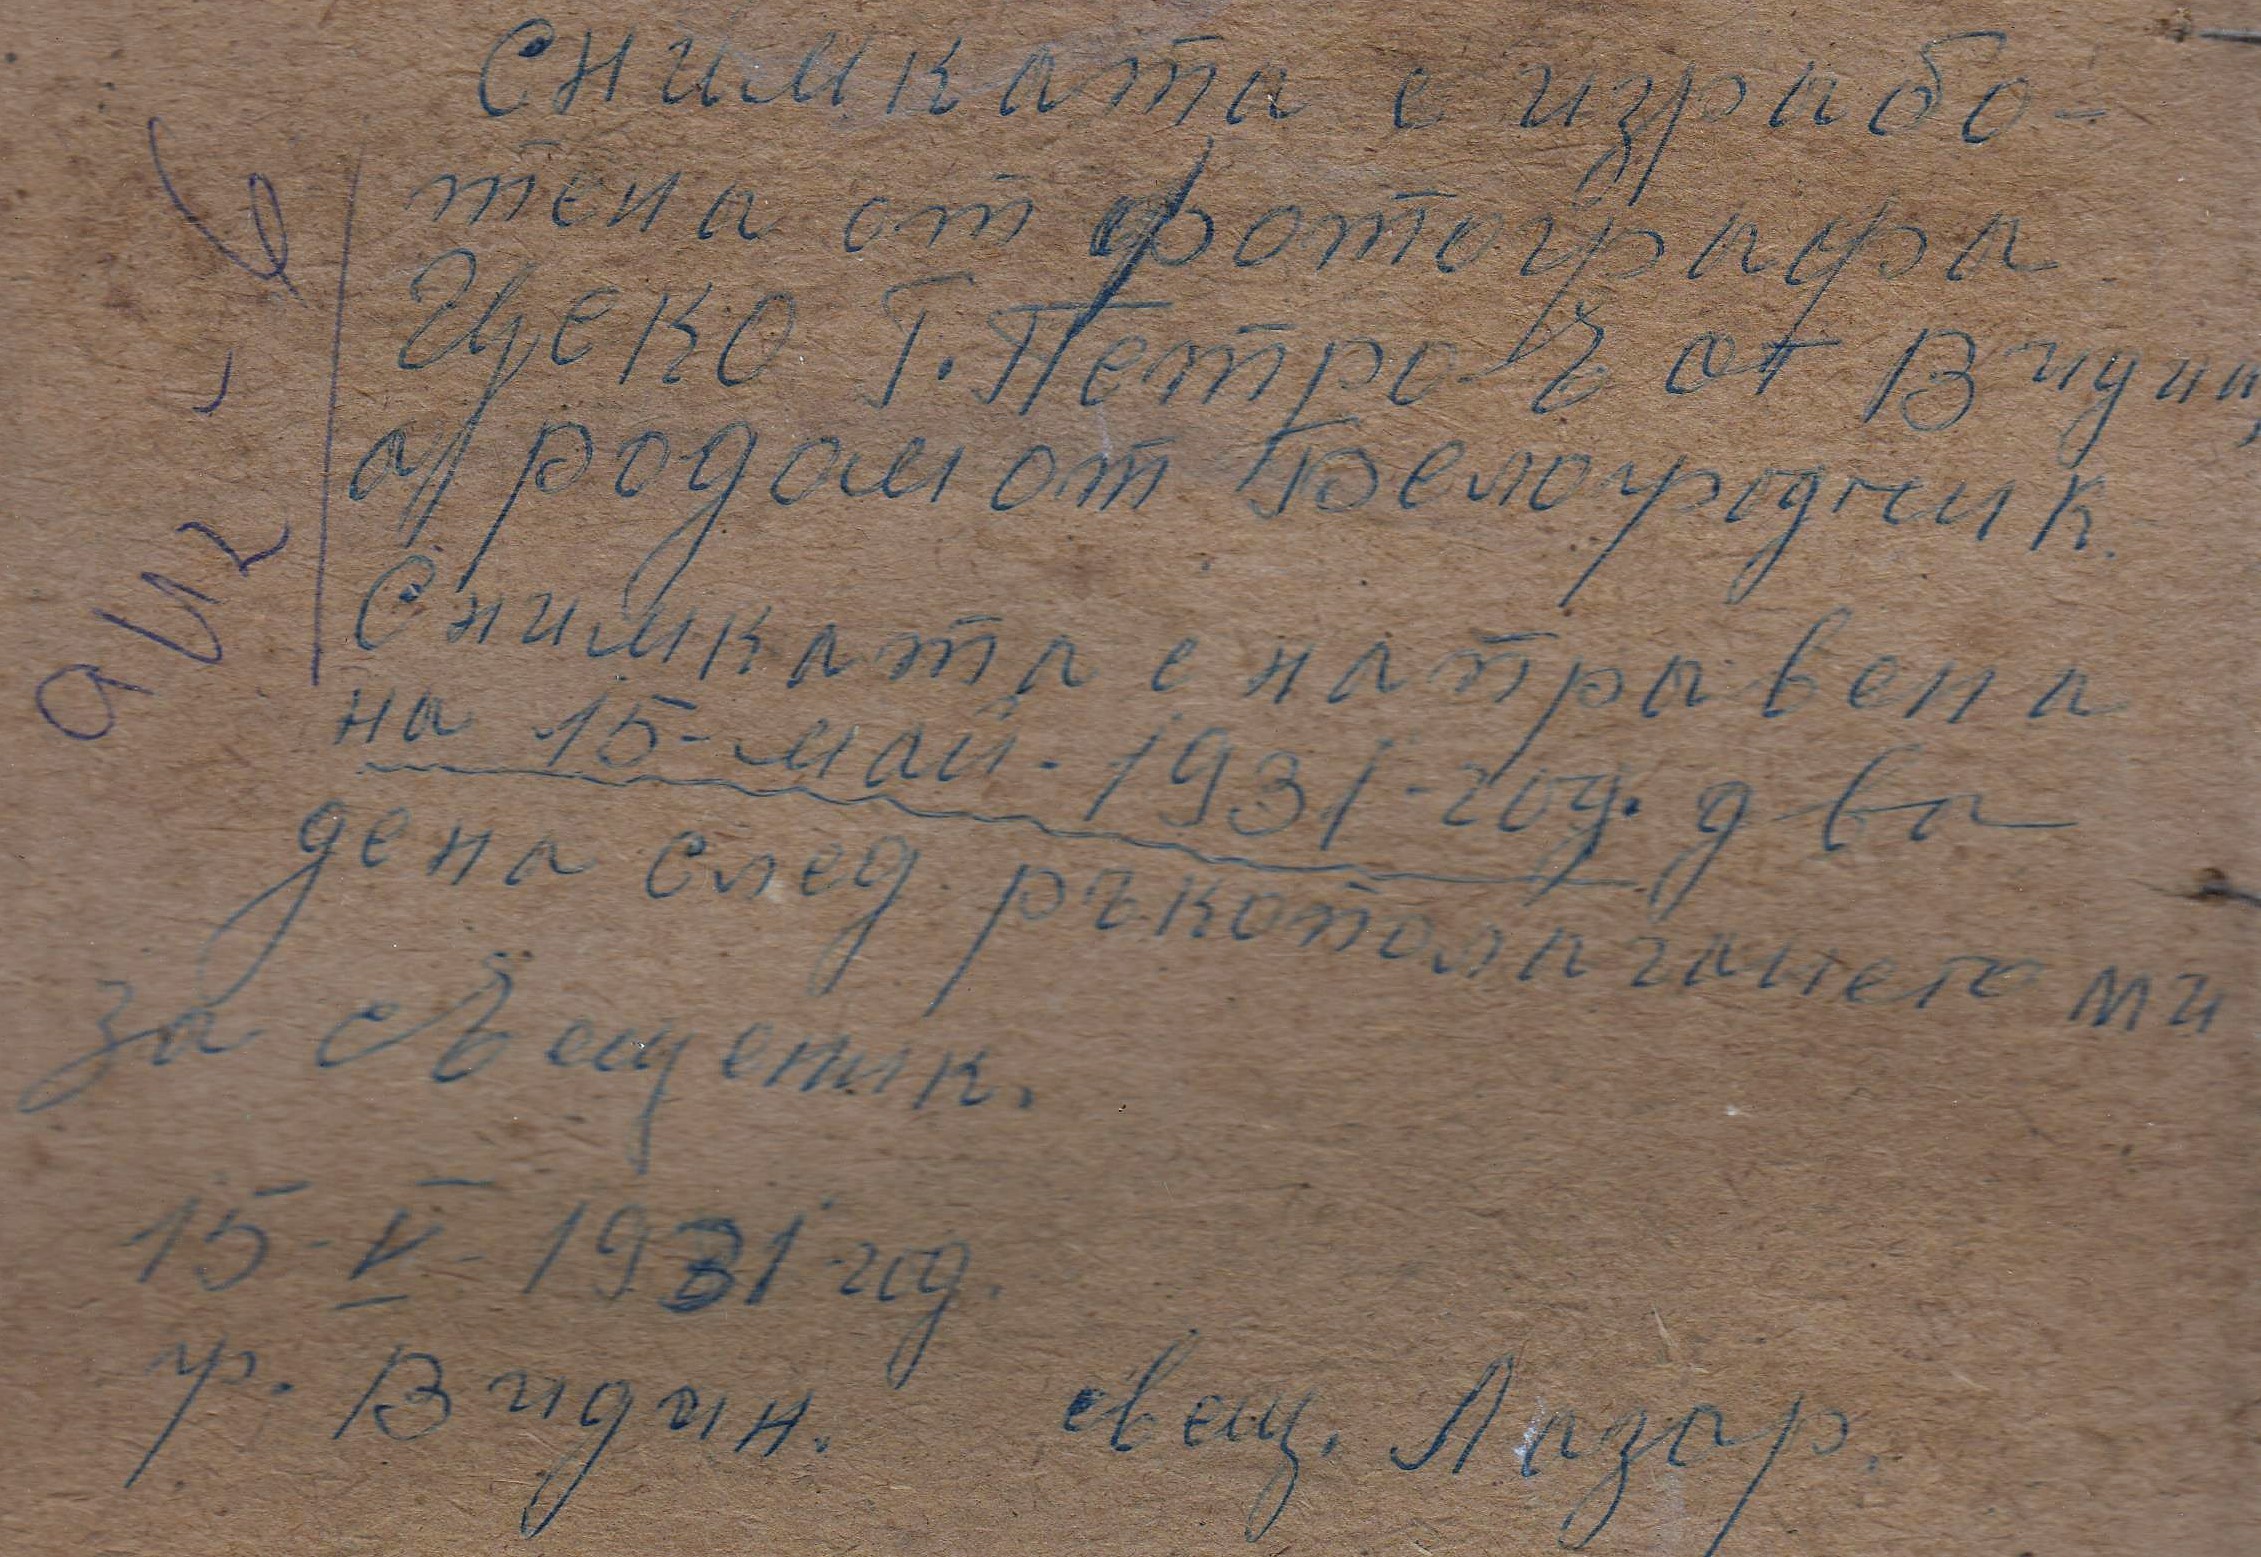 Снимката е израбо-
тена от фотографа
Цеко Г. Петровъ от Видин,
а родом от Белоградчик.
Снимката е направена
на 15-май-1931-год. два
дена след ръкополагането ми
за свещеник.
15-V-1931 год.
гр. Видин. свещ. Лазар.